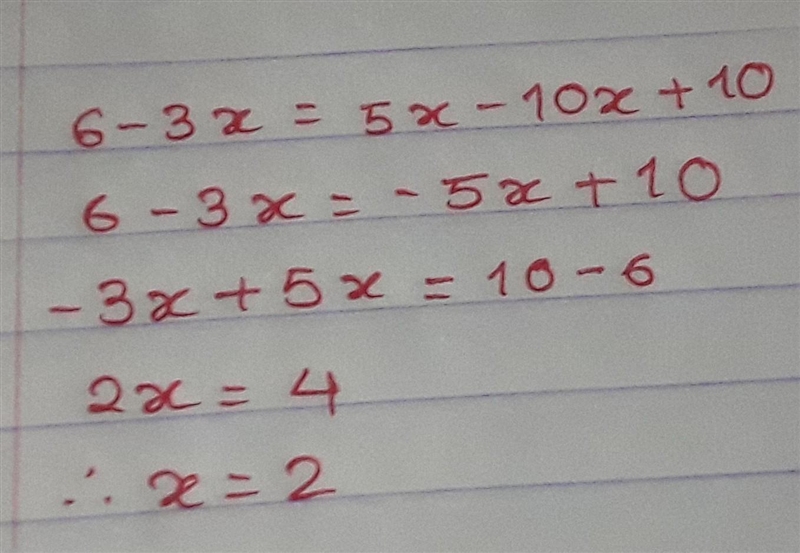 6 - 3x = 5x - 10x + 10
6 - 3x = - 5x + 10
- 3x + 5x = 10 - 6
2x = 4
∴ x = 2